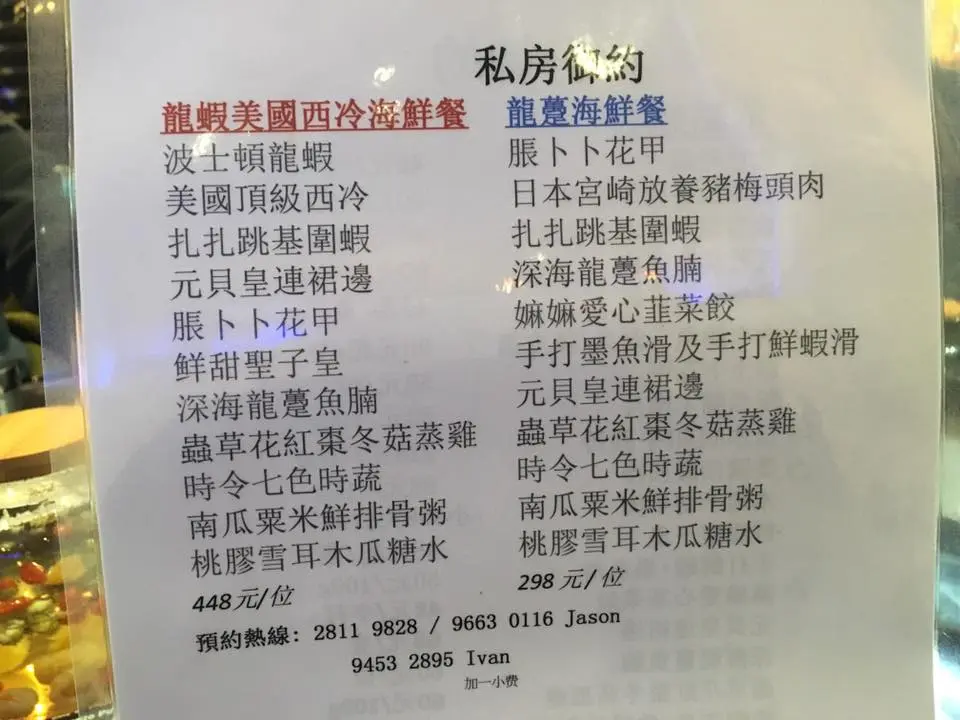 私房御約
龍蝦美國西冷海鮮餐
波士頓龍蝦
美國頂級西冷
扎扎跳基圍蝦
元貝皇連裙邊
脹卜卜花甲
鮮甜聖子皇
深海龍躉魚腩
蟲草花紅棗冬菇蒸雞
時令七色時蔬
南瓜粟米鮮排骨粥
桃膠雪耳木瓜糖水
448元/位
龍躉海鮮餐
脹卜卜花甲
日本宮崎放養豬梅頭肉
扎扎跳基圍蝦
深海龍躉魚腩
嫲嫲愛心韮菜餃
手打墨魚滑及手打鮮蝦滑
元貝皇連裙邊
蟲草花紅棗冬菇蒸雞
時令七色時蔬
南瓜粟米鮮排骨粥
桃膠雪耳木瓜糖水
298 元/ 位
預約熱線: 2811 9828 / 9663 0116 Jason
9453 2895 Ivan
加一小费